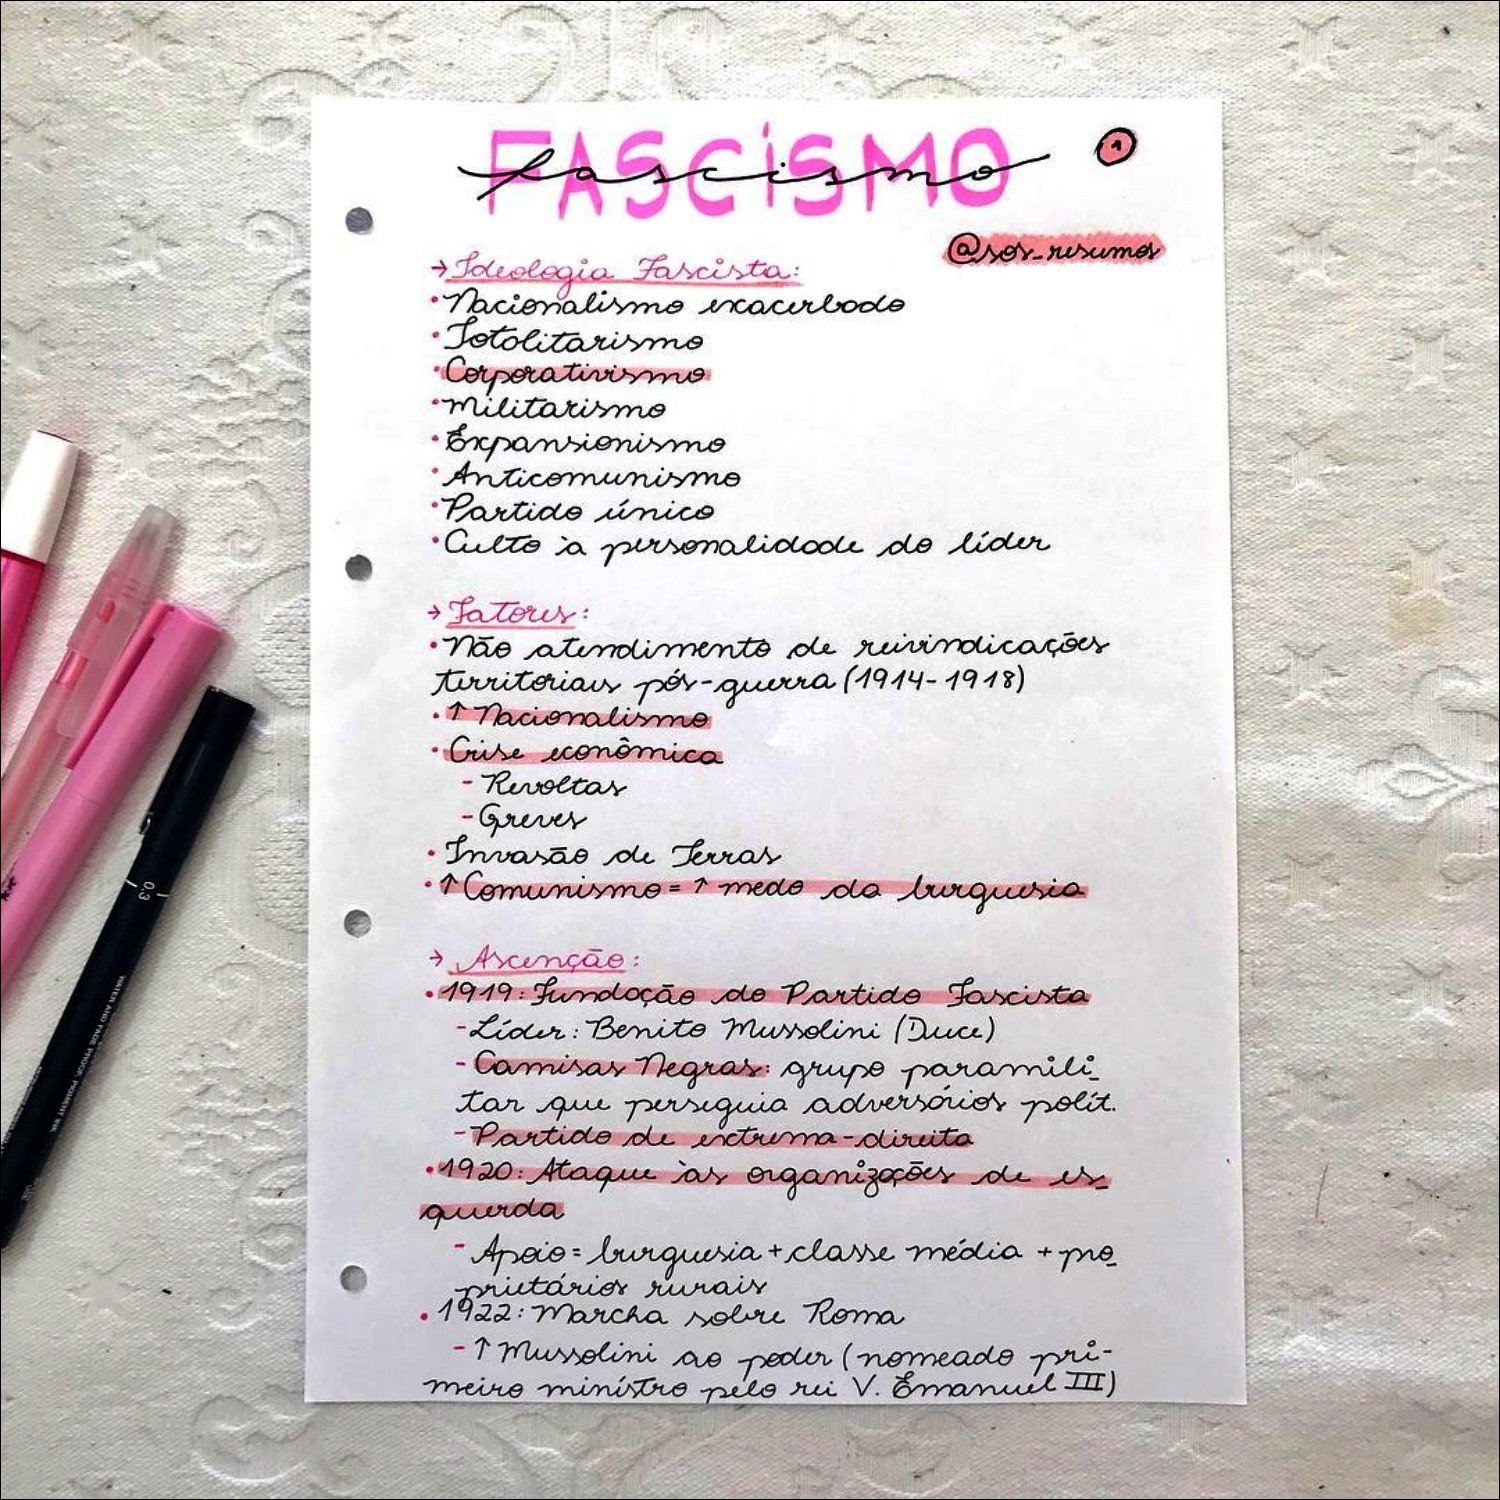 FASCISMO
Fascismo
1
@sos_resumos
→ Ideologia Fascista:
• Nacionalismo exacerbado
• Totalitarismo
• Corporativismo
• Militarismo
• Expansionismo
• Anticomunismo
• Partido único
• Culto à personalidade do líder
→ Fatores:
• Não atendimento de reivindicações
territoriais pós-guerra (1914-1918)
• ↑ Nacionalismo
• Crise econômica
- Revoltas
- Greves
• Invasão de Terras
• ↑ Comunismo = ↑ medo da burguesia
→ Ascenção:
• 1919: Fundação do Partido Fascista
- Líder: Benito Mussolini (Duce)
- Camisas Negras: grupo paramili_
tar que perseguia adversários polít.
- Partido de extrema-direita
• 1920: Ataque às organizações de es_
querda
- Apoio = burguesia + classe média + pro_
prietários rurais
• 1922: Marcha sobre Roma
- ↑ Mussolini ao poder (nomeado pri-
meiro minístro pelo rei V. Emanuel III)
0.3
WATER AND FADE PROOF PIGMENT INK